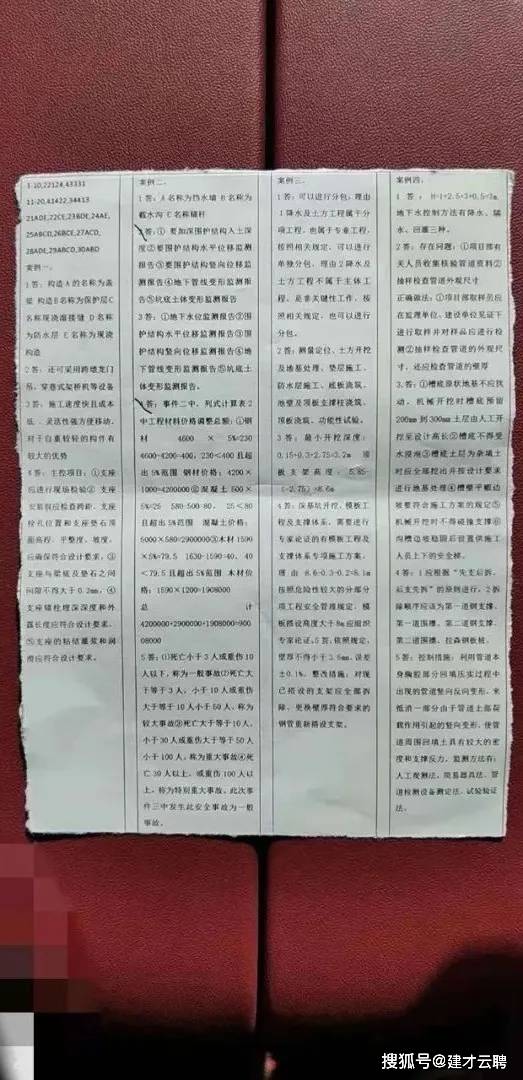 1-10,22124,43331
11-20,41422,34413
21ADE,22CE,23BDE,24AE,
25ABCD,26BCE,27ACD,
28ADE,29ABCD,30ABD
案例一：
1答：构造A的名称为盖
梁 构造B名称为保护层C
名称现浇湿接缝 D名称
为防水层 E名称为现浇
构造
2答：还可采用跨墩龙门
吊，穿巷式架桥机等设备
3答：施工速度快且成本
低、灵活性强方便移动，
对于自重较轻的构件有
较大的优势
4答：主控项目：①支座
应进行现场检验② 支座
安装前应检查跨距、支座
栓孔位置和支座垫石顶
面高程、平整度、坡度，
应确保符合设计要求。③
支座与梁底及垫石之间
间隙不得大于0.2mm。④
支座锚栓埋深深度和外
露长度应符合设计要求。
⑤支座的粘结灌浆和润
滑应符合设计要求。
案例二、
1答：A名称为挡水墙 B名称为
截水沟 C名称锚杆
2答：① 要加深围护结构入土深
度②要围护结构水平位移监测
报告③要围护结构竖向位移监
测报告④地下管线变形监测报
告⑤坑底土体变形监测报告
3答：①地下水位监测报告②围
护结构水平位移监测报告③围
护结构竖向位移监测报告④地
下管线变形监测报告⑤坑底土
体变形监测报告。
4答：事件二中，列式计算表2
中工程材料价格调整总额：①钢
材 4600 × 5%=230
4600-4200=400，230＜400且超
出5%范围 钢材价格：4200×
1000=4200000②混凝土500×
5%=25 580-500=80、25＜80
且超出5%范围 混凝土价格：
5000×580=2900000③木材1590
×5%=79.5 1630-1590=40、40
＜79.5且超出5%范围 木材价
格：1590×1200=1908000
总计
4200000+2900000+1908000=900
08000
5答：(1)死亡小于3人或重伤10
人以下，称为一般事故(2)死亡大
于等于3人，小于10人或重伤
大于等于10人小于50人，称为
较大事故③死亡大于等于10人，
小于30人或重伤大于等于50人
小于100人，称为重大事故④死
亡30人以上，或重伤100人以
上，称为特别重大事故。此次事
件三中发生此安全事故为一般
事故。
案例三、
1答：可以进行分包，理由
1降水及土方工程属于分
项工程，也属于专业工程，
按照相关规定，可以进行
单独分包。理由2降水及
土方工程不属于主体工
程，是非关键性工作，按
照相关规定，也可以进行
分包。
2答：测量定位、土方开挖
及地基处理、垫层施工、
防水层施工、底板浇筑、
池壁及顶板支撑柱浇筑、
顶板浇筑、功能性试验。
3答：最小开挖深度：
0.15+0.3+2.75=3.2m 顶
板支架高度：5.85-
(-2.75)=8.6m
4答：深基坑开挖、模板工
程及支撑体系，需要进行
专家论证的有模板工程及
支撑体系专项施工方案。
理由8.6-0.3-0.2=8.1m
按照危险性较大的分部分
项工程安全管理规定，模
板搭设高度大于8m应组织
专家论证。5答：依照规定，
壁厚不得小于3.6mm，误差
±0.1%。整改措施：对现
已搭设的支架应全部拆
除、更换壁厚符合要求的
钢管重新搭设支架。
案例四、
1答：H-1=2.5+3+0.5=3m
地下水控制方法有降水、隔
水、回灌三种。
2答：存在问题：①项目部有
关人员收集核验管道资料②
抽样检查管道外观尺寸
正确做法：①项目部取样员应
在监理单位、建设单位见证下
进行取样并对样品应进行检
测②抽样检查管道的外观尺
寸，还应检查管道的壁厚
3答：①槽底原状地基不应扰
动，机械开挖时槽底预留
200mm到300mm土层由人工开
挖至设计高长②槽底不得受
水浸泡③槽底土层为杂填土
时应全部挖出并按设计要求
进行地基处理④槽壁平顺边
坡要符合施工方案的规定⑤
机械开挖时不得碰撞支撑⑥
沟槽边坡稳固后设置供施工
人员上下的安全梯。
4答：1应根据“先支后拆，
后支先拆”的原则进行。2拆
除顺序应该为第一道钢支撑、
第一道围檩、第二道钢支撑、
第二道围檩、拉森钢板桩。
5答：控制措施：利用管道本
身胸腔部分回填压实过程中
出现的管道竖向反向变形，来
抵消一部分由于管道土部荷
载作用引起的竖向变形，使管
道周围回填土具有较大的密
度和支撑反力。监测方法有：
人工复测法、简易器具法、管
道检测设备测定法、试验验证
法。
搜狐号@建才云聘